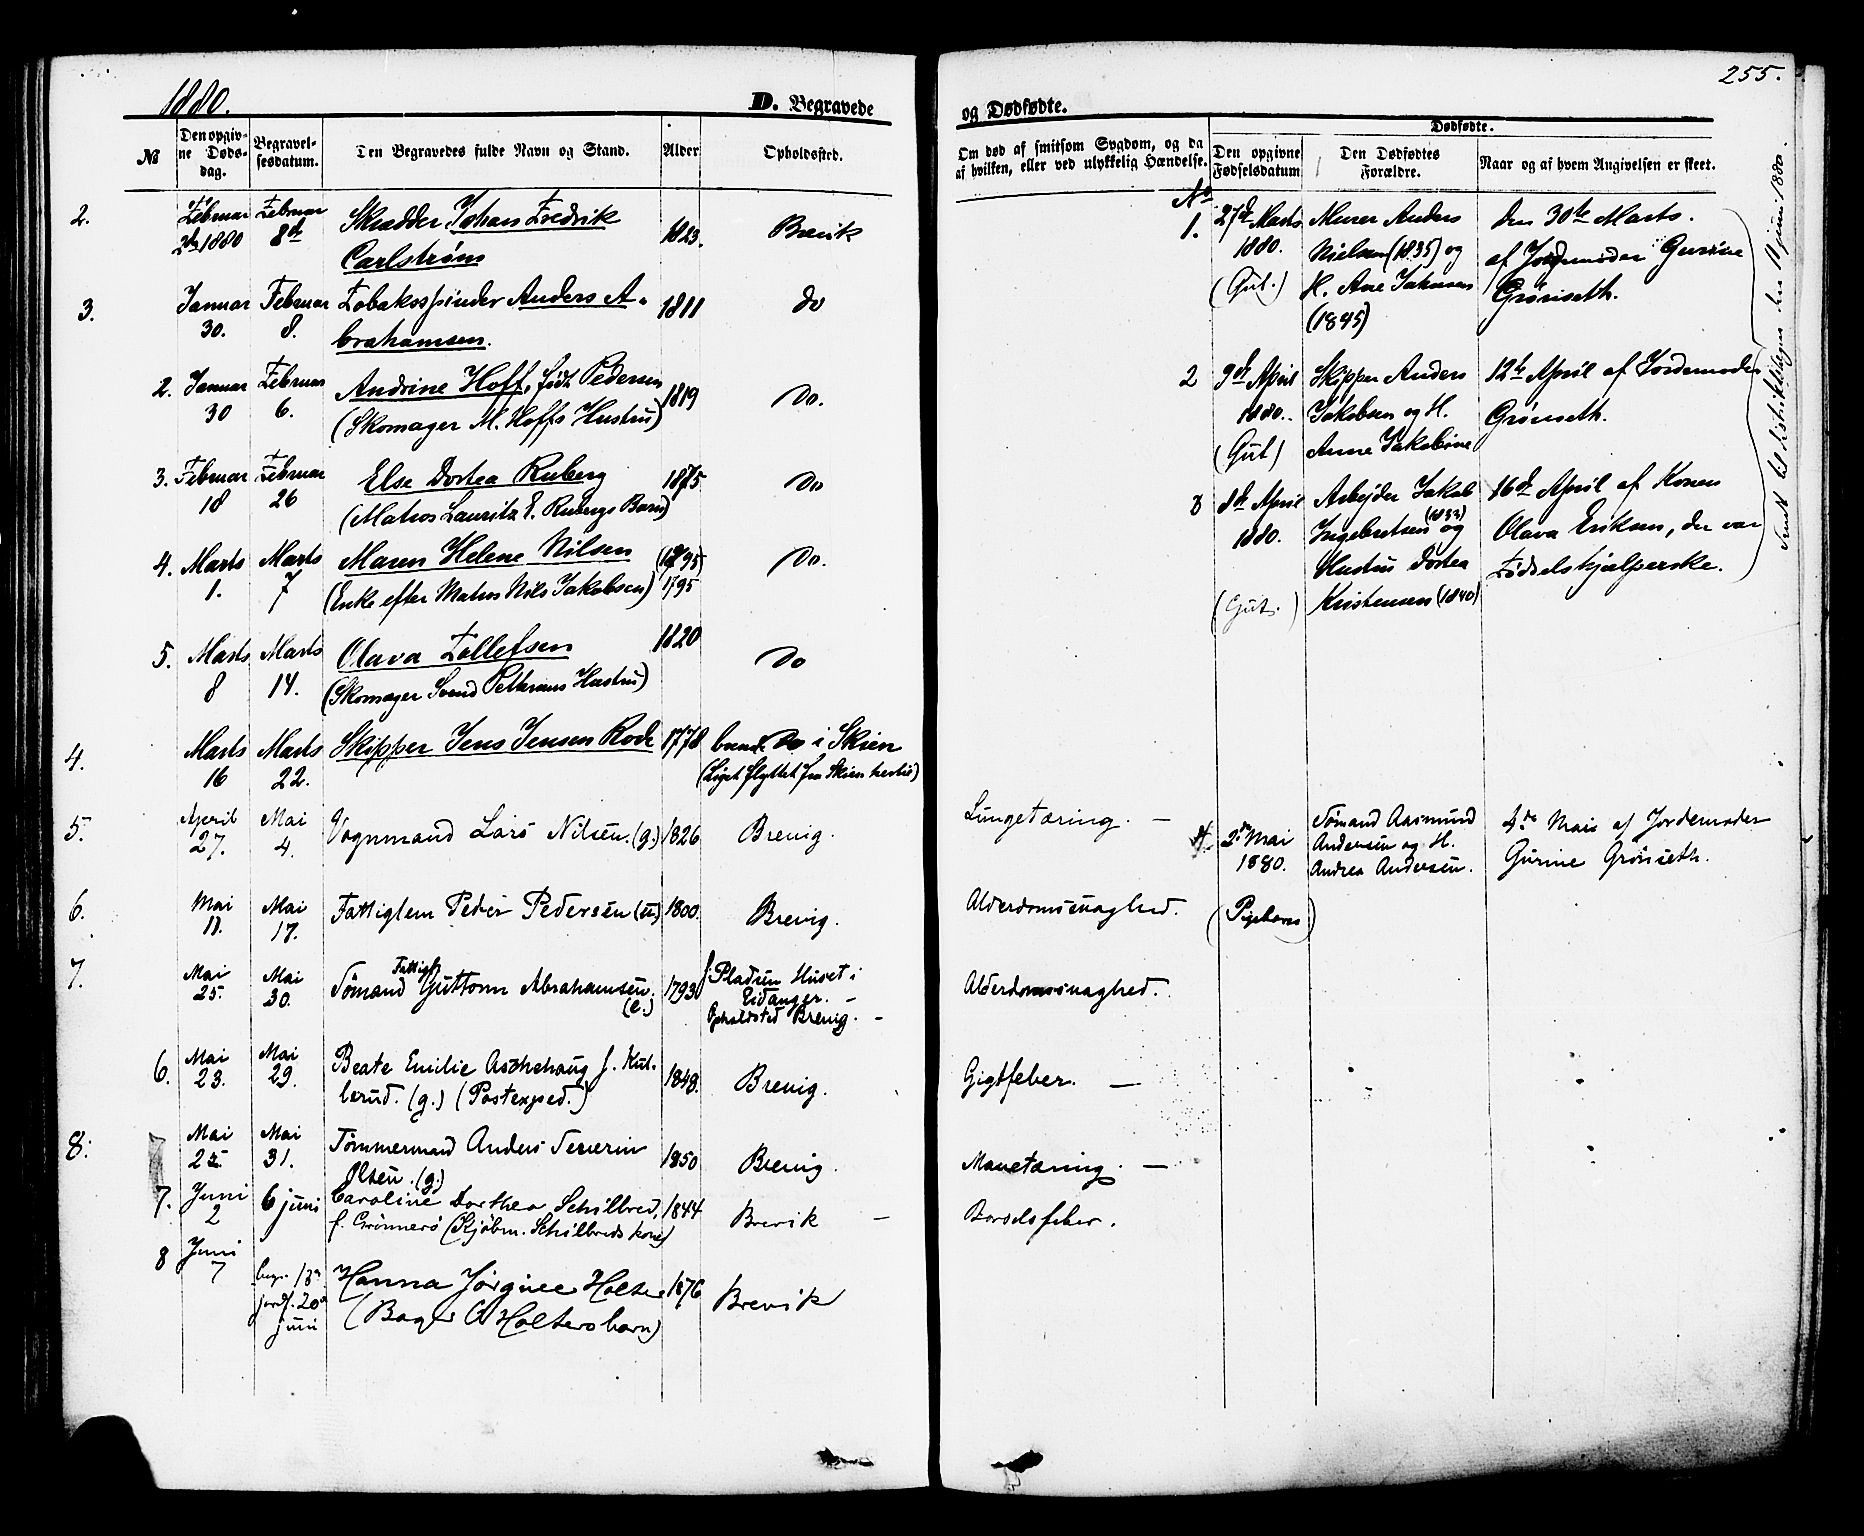 1880.
D. Begravede
No
Den opgiv-
ne Døds-
dag.
Begravel-
sesdatum.
Den Begravedes fulde Navn og Stand.
Alder
Opholdssted.
2.
Februar
2de 1880
Februar
8de
Skrædder Johan Fredrik
Carlstrøm
1823.
Brevik
3.
Januar
30.
Februar
8.
Tobaksspinder Anders A-
brahamsen.
1811
do
2.
Januar
30
Februar
6.
Andrine Hoff, født Pedersen
(Skomager M. Hoffs Hustru)
1819
Do.
3.
Februar
18
Februar
26
Else Dortea Ruberg
(Matros Lauritz E. Rubergs Barn)
1875
Do
4.
Marts
1.
Marts
7
Maren Helene Nilsen
(Enke efter Matros Nils Jakobsen)
(1795)
1795
Do.
5.
Marts
8
Marts
14.
Olava Tollefsen
(Skomager Svend Pettersens Hustru)
1820
Do
4.
Marts
16
Marts
22.
Skipper Jens Jensen Rode
1778
Do i Skien
(Liget flyttet fra Skien hertil)
5.
April
27.
Mai
4.
Vognmand Lars Nilsen. (g.)
1826
Brevig.
6.
Mai
11.
Mai
17.
Fattiglem Peder Pedersen (u.)
1800.
Brevig.
7.
Mai
25.
Mai
30.
Fattigl.
Sømand Guttorm Abrahamsen.
(e.)
1793
f. Pladsen Huset i
Eidanger. -
Opholdsted Brevig. -
6.
Mai
23.
Mai
29.
Beate Emilie Aschehoug f. Kul-
lerud. (g.) (Postexped.)
1848.
Brevig.
8.
Mai
25.
Mai
31.
Tømmermand Anders Severin
Olsen. (g.)
1850
Brevig.
7.
Juni
2
6 juni
Caroline Dorthea Schilbred,
f. Grønnerø (Kjøbm. Schilbreds kone)
1844
Brevik -
8
Juni
7
begr. 13de
jordf. 20de
juni
Hanna Jørgine Holter
(Bager Holters barn)
1876
Brevik
255.
og Dødfødte.
Om død af smitsom Sygdom, og da
af hvilken, eller ved ulykkelig Hændelse.
Dødfødte.
Den opgivne
Fødselsdatum
Den Dødfødtes
Forældre.
Naar og af hvem Angivelsen er skeet.
No
1.
27de Marts
1880.
(Gut.)
Murer Anders
Nielsen (1835) og
H. Ane Jakobsen
(1845)
den 30te Marts.
af Jordemoder Gurine
Grønseth.
2
9de April
1880.
(Gut)
Skipper Anders
Jakobsen og H.
Anne Jakobine
12te April af Jordemoder
Grønseth.
3
8de April
1880.
(Gut.)
Arbejder Jakob
Ingebretsen (1833) og
Hustru Dortea
Kristensen (1840)
16de April af Konen
Olava Eriksen, der var
Fødselshjælperske.
Sendt til distriktslægen den 11 juni 1880.
Lungetæring. -
4.
2den Mai
1880.
(Pigebarn)
Sømand Aasmund
Andersen og H.
Andrea Andersen.
4de Mai af Jordemoder
Gurine Grønseth.
Alderdomssvaghed.
Alderdomssvaghed.
Gigtfeber. -
Mavetæring. -
Barselfeber.